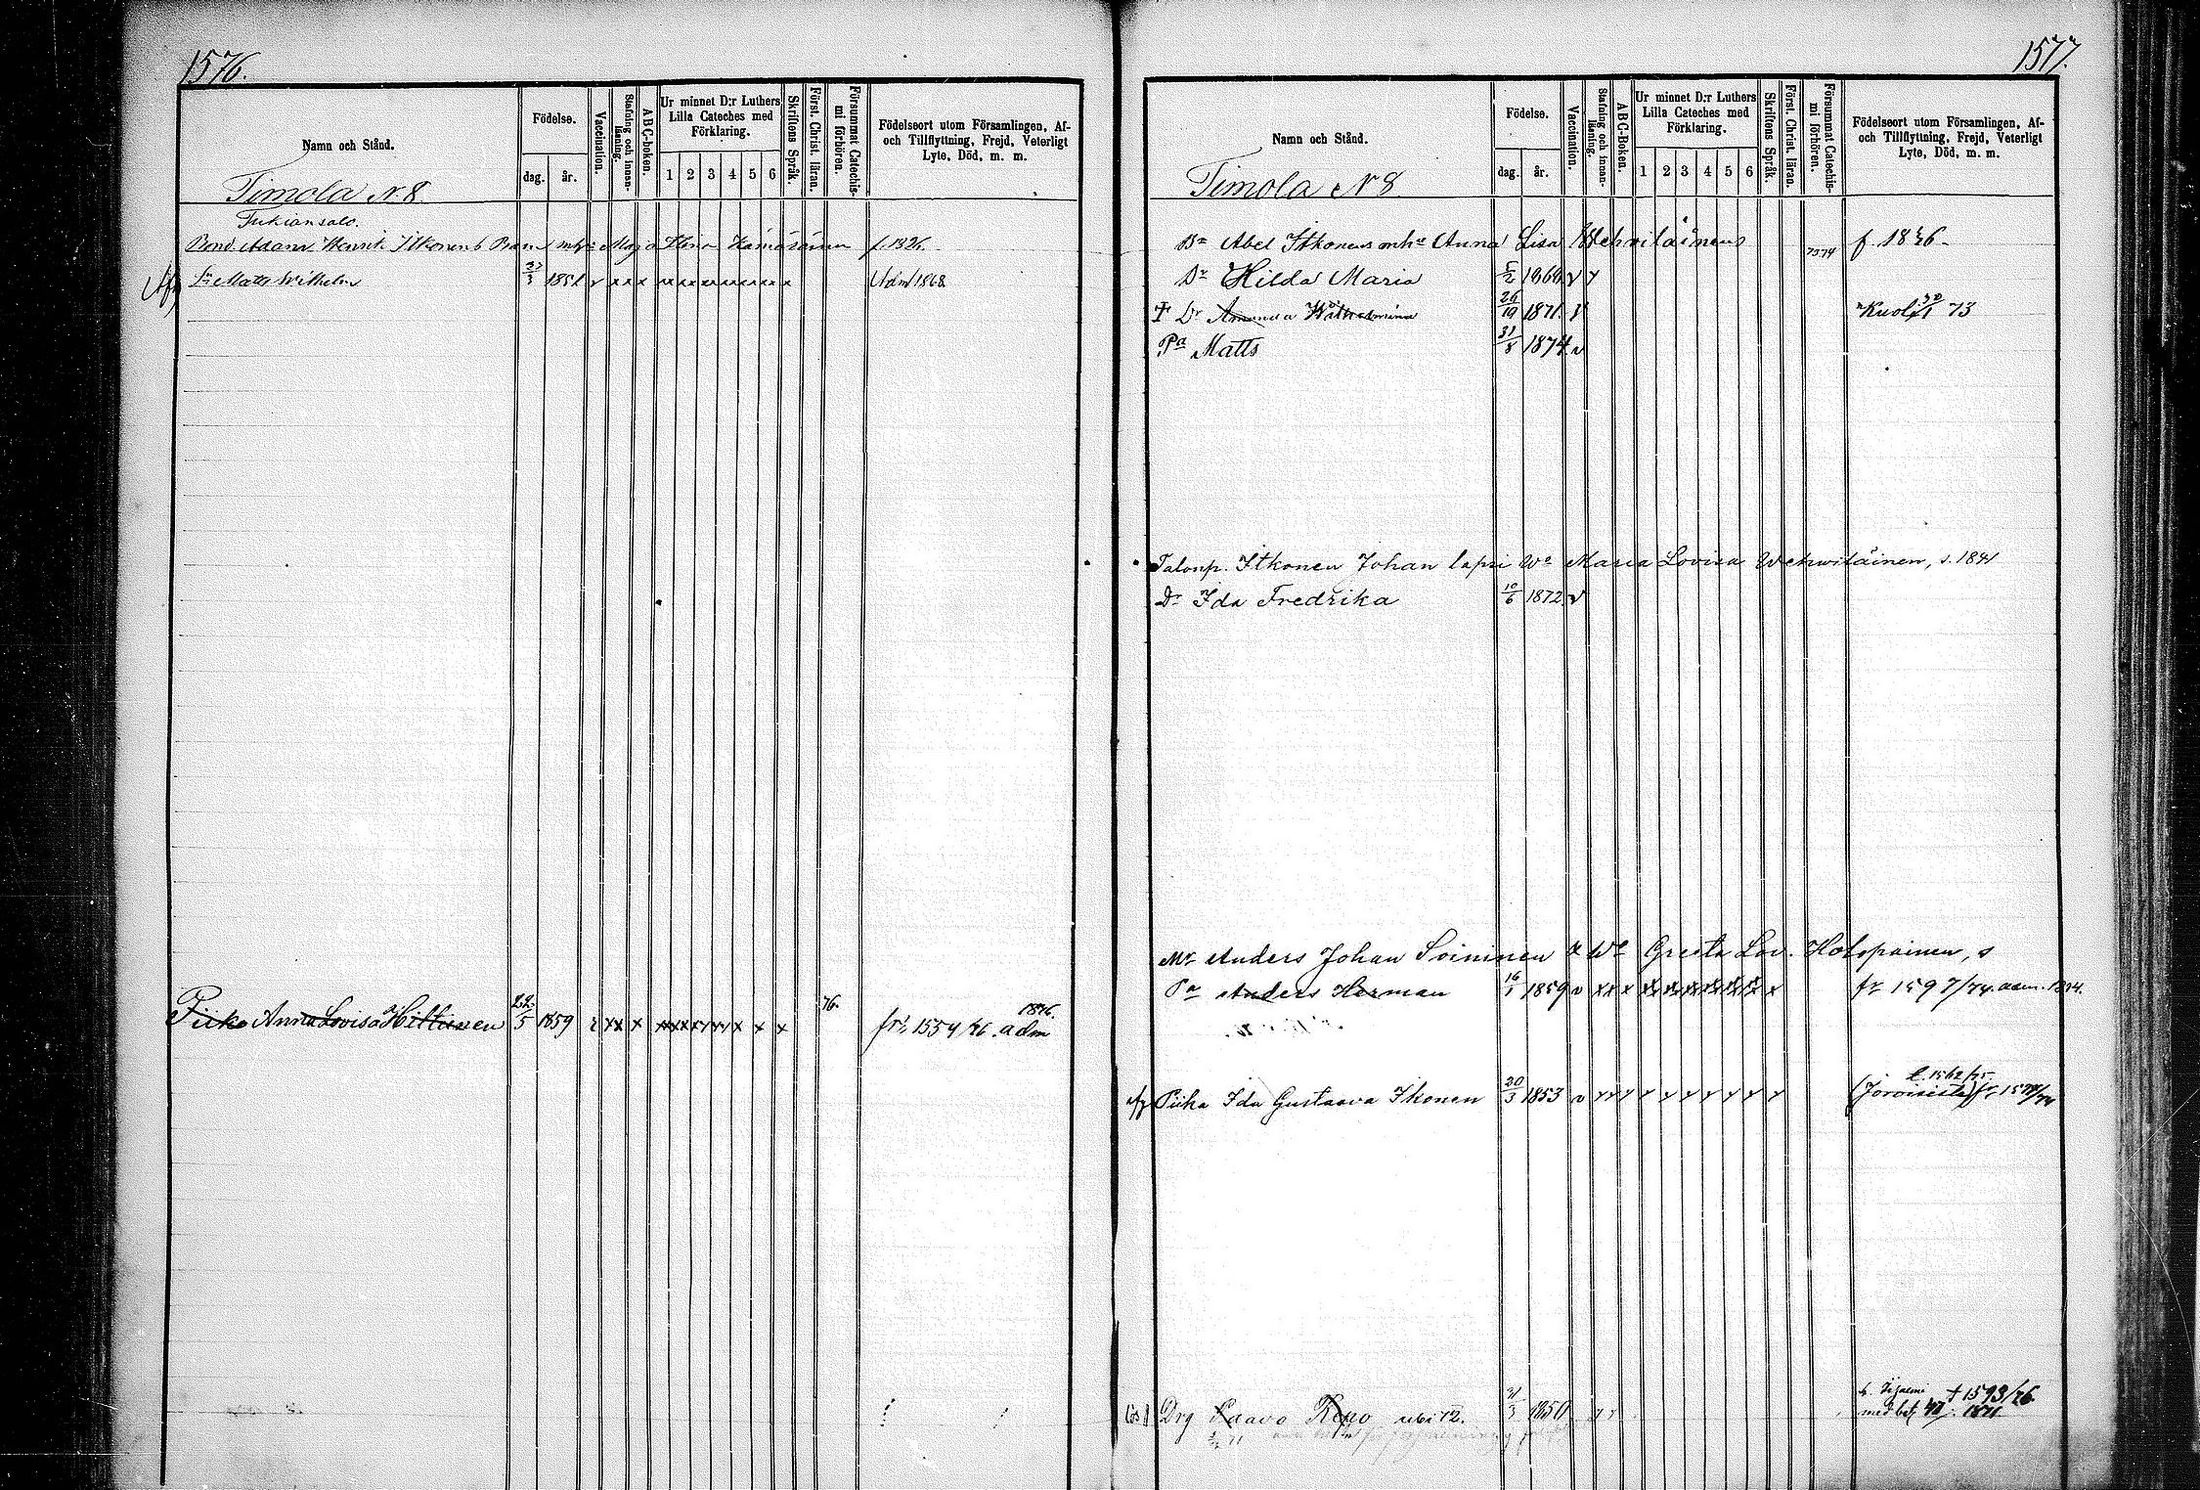 1576.
Namn och Stånd.
Födelse.
dag. år.
Vaccination.
Stafning och innan-läsning.
ABC-boken.
Ur minnet D:r Luthers
Lilla Cateches med
Förklaring.
1 2 3 4 5 6
Skriftens Språk.
Först. Christ. läran.
Försummat Catechis-
mi förhören.
Födelseort utom Församlingen, Af-
och Tillflyttning, Frejd, Veterligt
Lyte, Död, m. m.
Timola N. 8.
Tukiansalo.
Bond. Adam Henrik Itkonens Barn mh: Maja Stina Hämäläinen f. 1826.
Sn Matts Wilhelm 1851 v x x x x x x x x x x x Adm 1868
Piika Anna Lovisa Hiltunen 22/5 1859 v xx x xxxxxxx x x x 76. fr. 1554/76. adm 1876.
1577.
Namn och Stånd.
Födelse.
dag. år.
Vaccination.
Stafning och innan-läsning.
ABC-Boken.
Ur minnet D:r Luthers
Lilla Cateches med
Förklaring.
1 2 3 4 5 6
Skriftens Språk.
Först. Christ. läran.
Försummat Catechis-
mi förhören.
Födelseort utom Församlingen, Af-
och Tillflyttning, Frejd, Veterligt
Lyte, Död, m. m.
Timola N 8.
Abel Itkonens mha Anna Lisa Wehviläinens f. 1846
Dr Hilda Maria 5/2 1869 v v
† Dr Amanda Wilhelmina 26/10 1871 v Kuol. 73
Pa Matts 31/8 1874 v
Talonp. Itkonen Johan lapsi Wo Maria Lovisa Wehwiläinen, s. 1841
Dr Ida Fredrika 10/6 1872 v
Mr Anders Johan Soininen & Wo Greeta Lov. Holopainen, s
Pa Anders Herman 16/1 1859 v x x x x x x x x x x fr 1597/74. adm. 1874.
afg Piika Ida Gustaava Ikonen 20/3 1853 v x x x x x x x x x x (Joroisista) fr.
Drg Paavo Repo 1850 † 1593/76
med bet. 1871